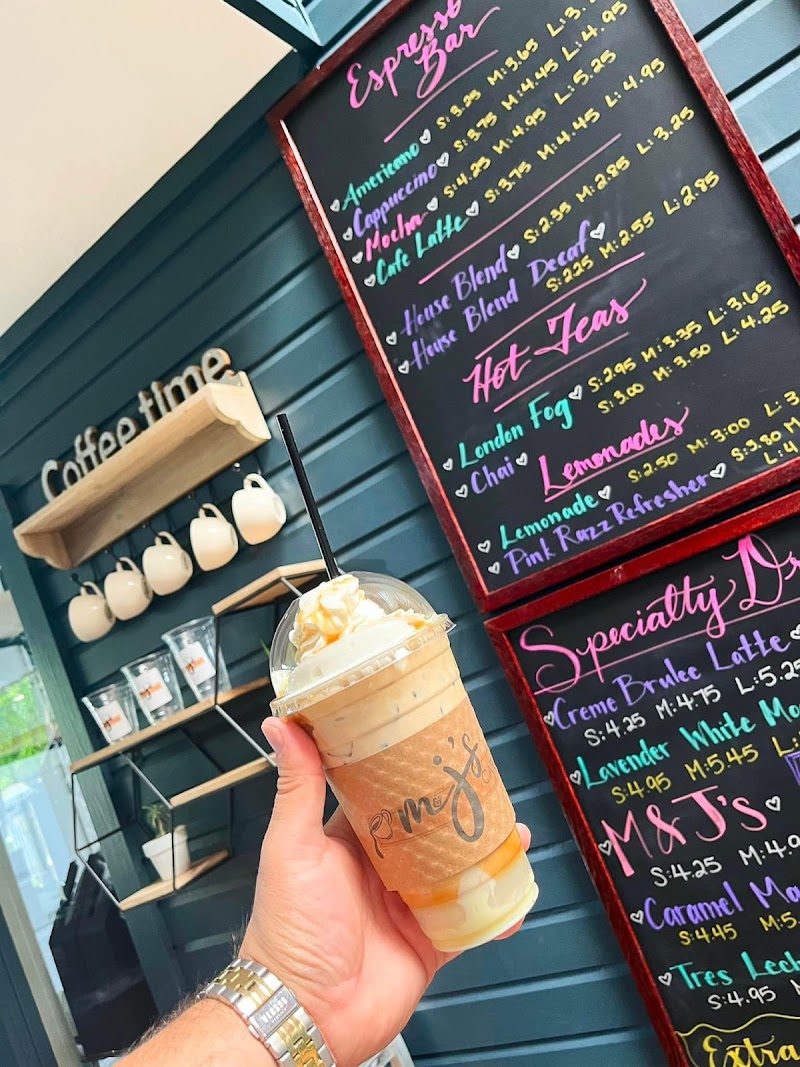 Espresso
Bar
Americano S:3.25 M:3.65 L:3.
Cappuccino S:3.75 M:4.45 L:4.95
Mocha S:4.25 M:4.95 L:5.25
Cafe Latte S:3.75 M:4.45 L:4.95
House Blend S:2.35 M:2.85 L:3.25
House Blend Decaf S:2.25 M:2.55 L:2.85
Hot Teas
London Fog S:2.95 M:3.35 L:3.65
Chai S:3.00 M:3.50 L:4.25
Lemonades
Lemonade S:2.50 M:3.00 L:3.
Pink Razz Refresher S:3.80 M
L:4
Coffee time
m&j's
Specialty Dr
Creme Brulee Latte
S:4.25 M:4.75 L:5.25
Lavender White Mo
S:4.95 M:5.45 L:
M&J's
S:4.25 M:4.9
Caramel Ma
S:4.45 M:5.
Tres Lech
S:4.95 M
Extra